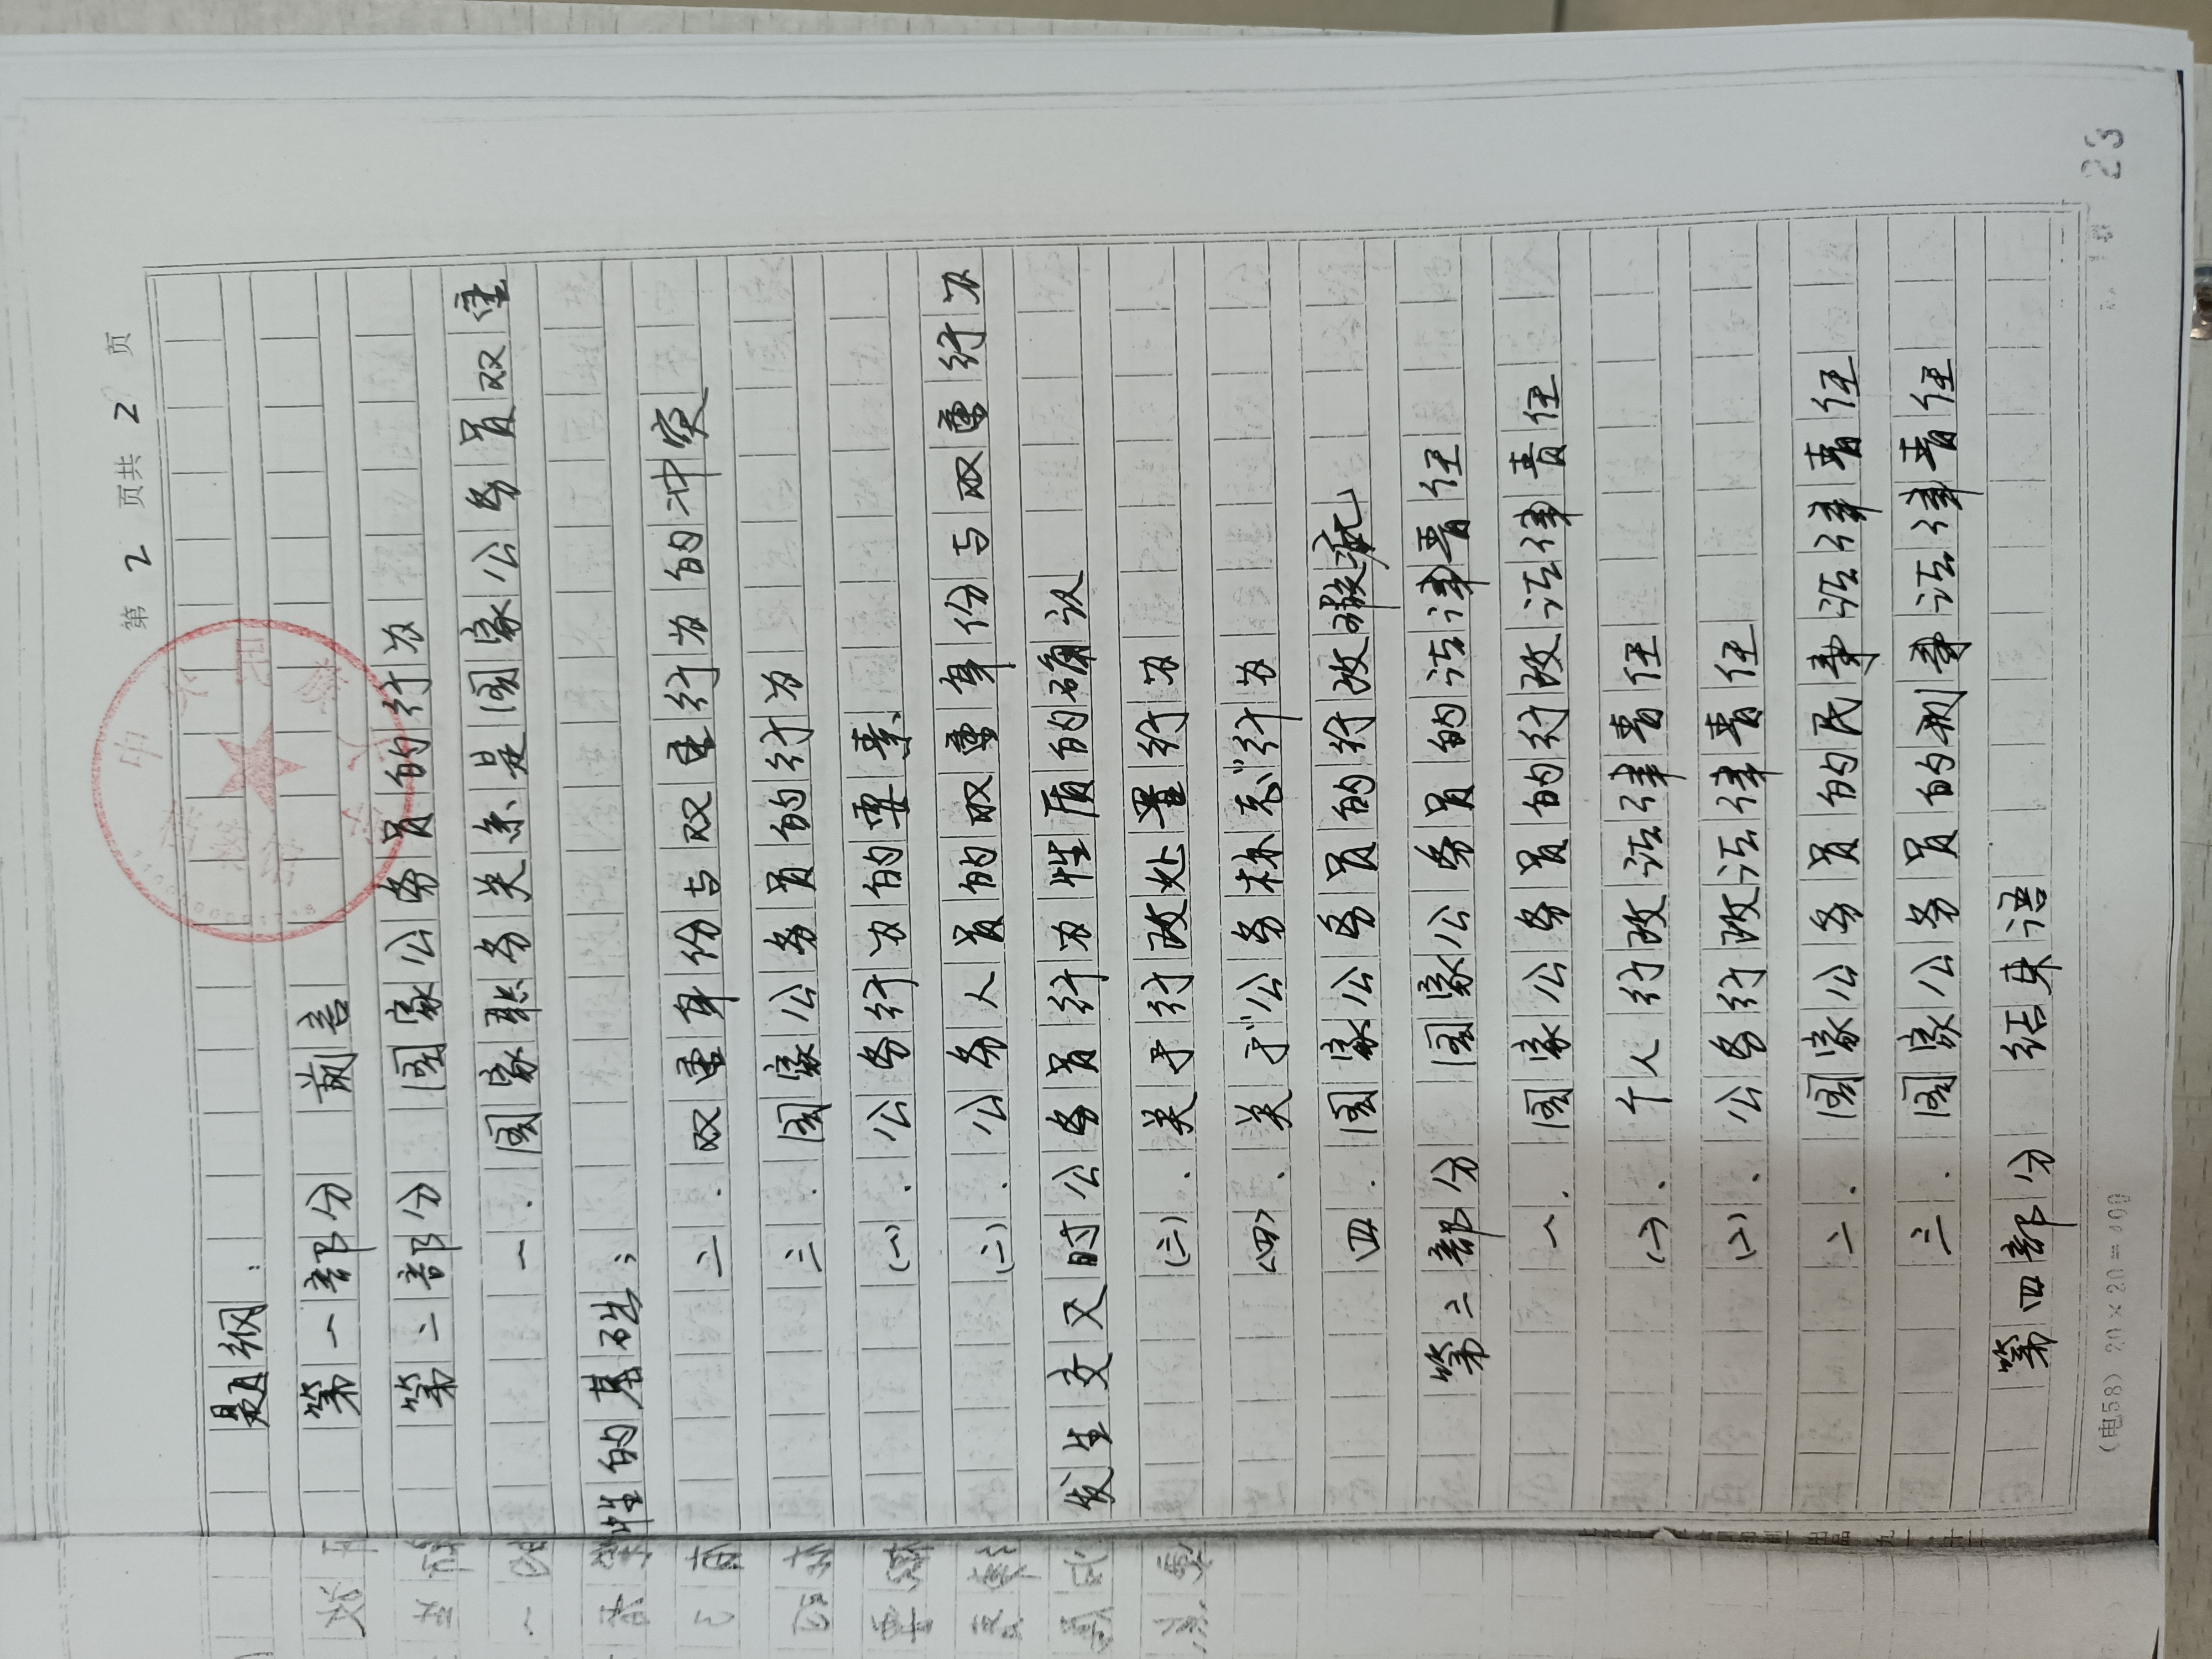 第 2 页共 2 页
题纲:
第一部分 前言
第二部分 国家公务员的行为
一. 国家职务关系是国家公务员双重
性的基础;
二. 双重身份与双重行为的冲突
三. 国家公务员的行为
(一). 公务行为的要素
(二). 公务人员的双重身份与双重行为
发生交叉时公务员行为性质的确认
(三). 关于行政处置行为
(四). 关于"公务标志"行为
四. 国家公务员的行政
第三部分 国家公务员的法律责任
一. 国家公务员的行政法律责任
(一). 个人行政法律责任
(二). 公务行政法律责任
二. 国家公务员的民事法律责任
三. 国家公务员的刑事法律责任
第四部分 结束语
(电58) 20×20=400
23